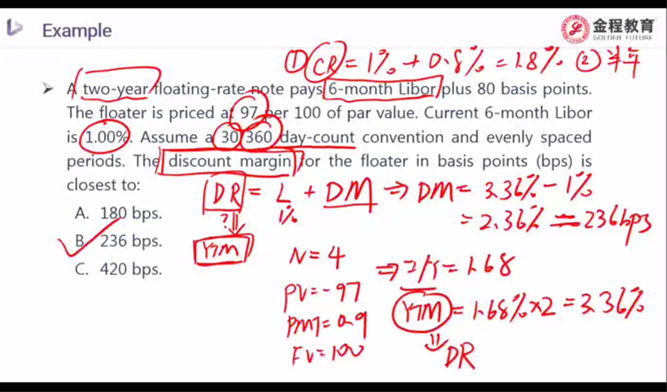 Example
金程教育
GOLDEN FUTURE
① CR = 1% + 0.8% = 1.8% ② 半年
➤ A two-year floating-rate note pays 6-month Libor plus 80 basis points.
The floater is priced at 97 per 100 of par value. Current 6-month Libor
is 1.00%. Assume a 30/360 day-count convention and evenly spaced
periods. The discount margin for the floater in basis points (bps) is
closest to:
DR = L + DM ⇒ DM = 3.36% - 1%
1%
= 2.36% = 236bps
A. 180 bps.
B. 236 bps.
C. 420 bps.
?
YTM
N = 4
PV = -97
PMT = 0.9
FV = 100
⇒ I/Y = 1.68
YTM = 1.68% × 2 = 3.36%
DR